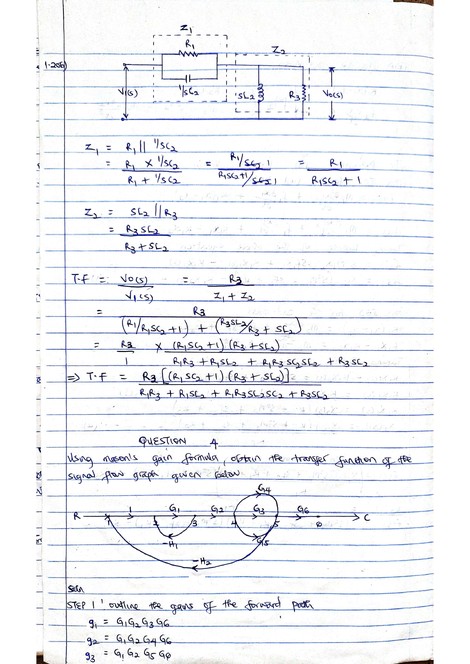 Z1
R1
Z2
1.20b)
Vi(s)
1/SC2
SL2
R3
Vo(s)
Z1 = R1 || 1/SC2
= R1 x 1/SC2 / R1 + 1/SC2 = R1/SC2 1 / R1SC2+1/SC2 1 = R1 / R1SC2 + 1
Z2 = SL2 || R3
= R3SL2 / R3 + SL2
T.f = Vo(s) / Vi(s) = R3 / Z1 + Z2
= R3 / (R1/R1SC2 + 1) + (R3SL2/R3 + SL2)
= R3 / 1 x (R1SC2 + 1) (R3 + SL2) / R1R3 + R1SL2 + R1R3SC2SL2 + R3SL2
=> T.f = R3 [(R1SC2 + 1) (R3 + SL2)] / R1R3 + R1SL2 + R1R3SL2SC2 + R3SL2
QUESTION 4
Using mason's gain formula, obtain the transfer function of the
signal flow graph given below
G4
R 1 G1 G2 G3 G6 C
1 2 3 4 5 6
-H1
G5
-H2
Soln
STEP 1: outline the gains of the forward path
g1 = G1G2G3G6
g2 = G1G2G4G6
g3 = G1G2G5G6